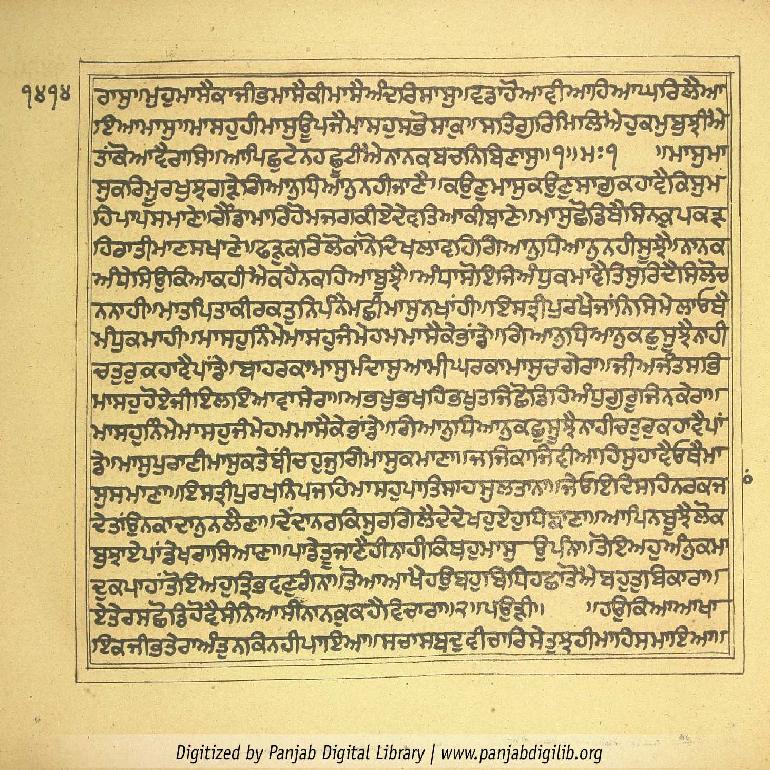 ੧੪੧੪
ਰਾਸਾ॥ਮੁਹੁਮਾਸੈਕਾਜੀਭਮਾਸੈਕੀਮਾਸੈਅੰਦਰਿਸਾਸੁ॥ਵਡਾਹੋਆਵੀਆਹਿਆਘਰਿਲੈਆ
ਇਆਮਾਸੁ॥ਮਾਸਹੁਹੀਮਾਸੁਊਪਜੈਮਾਸਹੁਸਭੋਸਾਕੁ॥ਸਤਿਗੁਰਿਮਿਲਿਐਹੁਕਮੁਬੁਝੀਐ
ਤਾਂਕੋਆਵੈਰਾਸਿ॥ਆਪਿਛੁਟੇਨਹਛੂਟੀਐਨਾਨਕਬਚਨਿਬਿਣਾਸੁ॥੧॥ਮਃ੧ ॥ਮਾਸੁਮਾ
ਸੁਕਰਿਮੂਰਖੁਝਗੜੇਗਿਆਨੁਧਿਆਨੁਨਹੀਜਾਣੈ॥ਕਉਣੁਮਾਸੁਕਉਣੁਸਾਗੁਕਹਾਵੈਕਿਸੁਮ
ਹਿਪਾਪਸਮਾਣੇ॥ਗੈਂਡਾਮਾਰਿਹੋਮਜਗਕੀਏਦੇਵਤਿਆਕੀਬਾਣੇ॥ਮਾਸੁਛੋਡਿਬੈਸਿਨਕੁਪਕੜ
ਹਿਰਾਤੀਮਾਣਸਖਾਣੇ॥ਫੜੁਕਰਿਲੋਕਾਂਨੋਦਿਖਲਾਵਹਿਗਿਆਨੁਧਿਆਨੁਨਹੀਸੂਝੈ॥ਨਾਨਕ
ਅੰਧੇਸਿਉਕਿਆਕਹੀਐਕਹੈਨਕਹਿਆਬੂਝੈ॥ਅੰਧਾਸੋਇਜਿਅੰਧੁਕਮਾਵੈਤਿਸੁਰਿਦੈਸਿਲੋਚ
ਨਨਾਹੀ॥ਮਾਤਪਿਤਾਕੀਰਕਤੁਨਿਪੰਨੇਮਛੀਮਾਸੁਨਖਾਂਹੀ॥ਇਸਤ੍ਰੀਪੁਰਖੈਜਾਂਨਿਸਿਮੇਲਾਓਥੈ
ਮੰਧੁਕਮਾਹੀ॥ਮਾਸਹੁਨਿੰਮੇਮਾਸਹੁਜੰਮੇਹਮਮਾਸੈਕੇਭਾਂਡੇ॥ਗਿਆਨੁਧਿਆਨੁਕਛੁਸੂਝੈਨਾਹੀ
ਚਤੁਰੁਕਹਾਵੈਪਾਂਡੇ॥ਬਾਹਰਕਾਮਾਸੁਮੰਦਾਸੁਆਮੀਘਰਕਾਮਾਸੁਚਗੇਰਾ॥ਜੀਅਜੰਤਸਭਿ
ਮਾਸਹੁਹੋਏਜੀਇਲਾਇਆਵਾਸੇਰਾ॥ਅਭਖੁਭਖਹਿਭਖੁਤਜਿਛੋਡਹਿਅੰਧੁਗੁਰੂਜਿਨਕੇਰਾ॥
ਮਾਸਹੁਨਿੰਮੇਮਾਸਹੁਜੰਮੇਹਮਮਾਸੈਕੇਭਾਂਡੇ॥ਗਿਆਨੁਧਿਆਨੁਕਛੁਸੂਝੈਨਾਹੀਚਤੁਰੁਕਹਾਵੈਪਾਂ
ਡੇ॥ਮਾਸੁਪੁਰਾਣੀਮਾਸੁਕਤੇਬੀਚਹੁਜੁਗਿਮਾਸੁਕਮਾਣਾ॥ਜਜਿਕਾਜਿਵੀਆਹਿਸੁਹਾਵੈਓਥੈਮਾ
ਸੁਸਮਾਣਾ॥ਇਸਤ੍ਰੀਪੁਰਖਨਿਪਜਹਿਮਾਸਹੁਪਾਤਿਸਾਹਸੁਲਤਾਨਾ॥ਜੇਓਇਦਿਸਹਿਨਰਕਜ
ਦੇਤਾਂਉਨਕਾਦਾਨੁਨਲੈਣਾ॥ਦੇਂਦਾਨਰਕਿਸੁਰਗਿਲੈਦੇਦੇਖਹੁਏਹੁਧਿਙਾਣਾ॥ਆਪਿਨਬੂਝੈਲੋਕ
ਬੁਝਾਏਪਾਂਡੇਖਰਾਸਿਆਣਾ॥ਪਾਡੇਤੂਜਾਣੈਹੀਨਾਹੀਕਿਥਹੁਮਾਸੁ ਉਪੰਨਾ॥ਤੋਇਅਹੁਅੰਨੁਕਮਾ
ਦੁਕਪਾਹਾਂਤੋਇਅਹੁਤ੍ਰਿਭਵਣੁਗੰਨਾ॥ਤੋਆਆਖੈਹਉਬਹੁਬਿਧਿਹਛਾਤੋਐਬਹੁਤੁਬਿਕਾਰਾ॥
ਏਤੇਰਸਛੋਡਿਹੋਵੈਸੰਨਿਆਸੀਨਾਨਕੁਕਹੈਵਿਚਾਰਾ॥੨॥ਪਉੜੀ॥ ॥ਹਉਕਿਆਆਖਾ
ਇਕਜੀਭਤੇਰਾਅੰਤੁਨਾਕਿਨਹੀਪਾਇਆ॥ਸਚਾਸਬਦੁਵੀਚਾਰਿਸੇਤੁਝਹੀਮਾਹਿਸਮਾਇਆ॥
Digitized by Panjab Digital Library | www.panjabdigilib.org